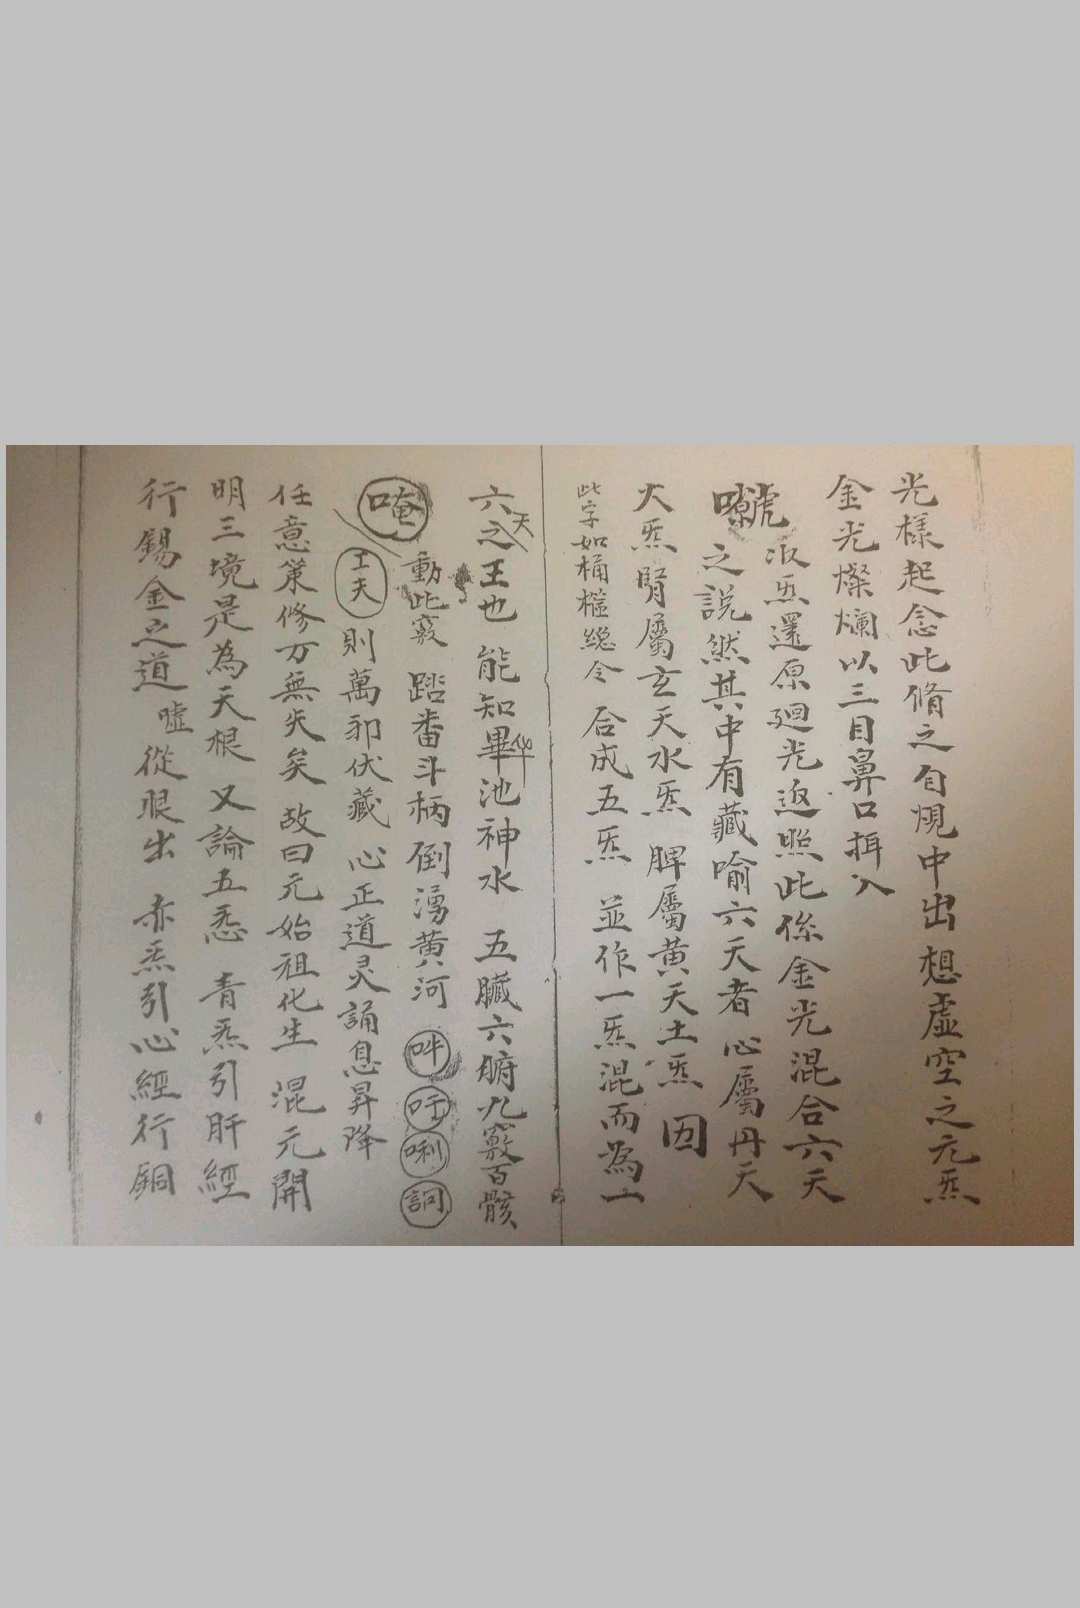 光樣起念此脩之自覞中出想虛空之元炁
金光燦爛以三目鼻口揖入
㘊收炁還原廻光返照此係金光混合六天
之説然其中有藏喻六天者心屬丹天
大炁腎屬玄天水炁脾屬黄天土炁囝
此字如桶樣縂令合成五炁並作一炁混而為一
六天之王也能知畢華池神水五臟六腑九竅百骸
唵動此竅踏畨斗柄倒湧黄河吽吁唎訶
工夫則萬邪伏藏心正道灵誦息昇降
任意策修万無失矣故曰元始祖化生混元開
明三境是為天根又論五炁青炁引肝經
行錫金之道噓從眼出赤炁引心經行銅